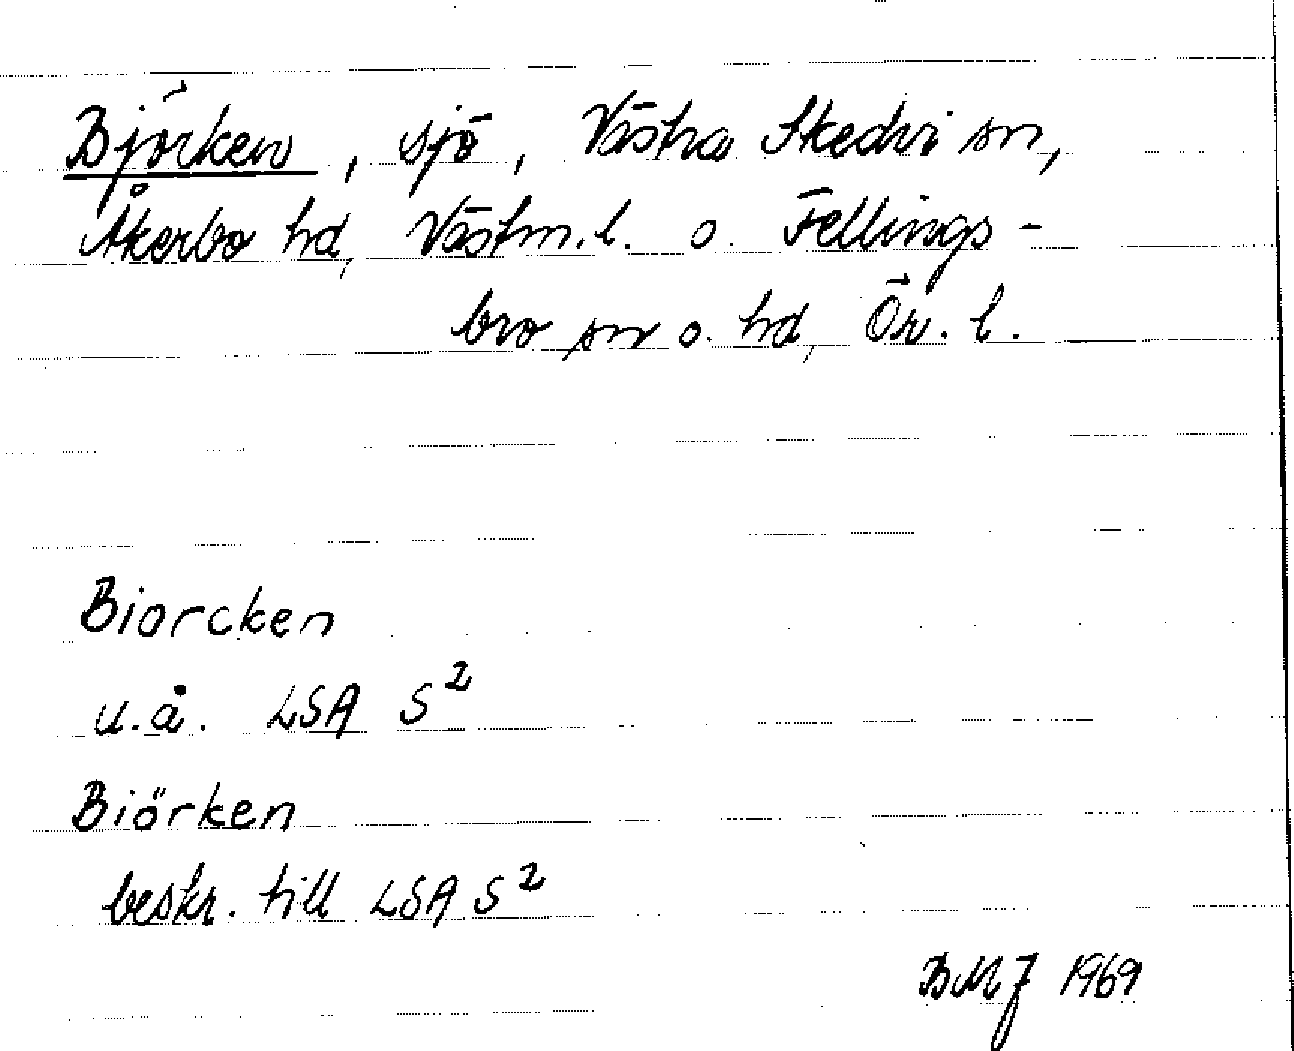 Björken, sjö, Västra Skedvi sn,
Åkerbo hd, Västm. l. o. Fellings-
bro sn o. hd, Ör. l.
Biorcken
u.å. LSA S²
Biörken
beskr. till LSA S²
BMJ 1969